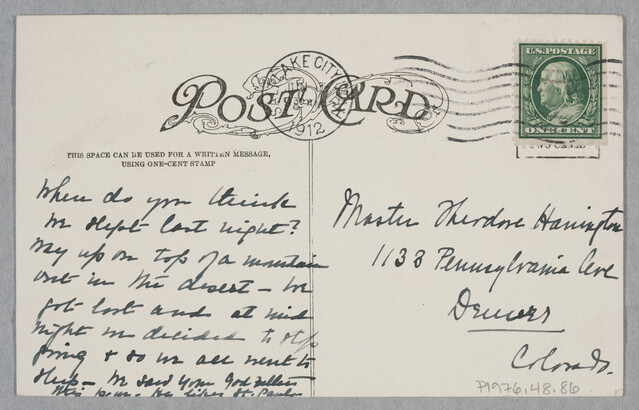 POST CARD
SALT LAKE CITY, UTAH
1912
U.S. POSTAGE
ONE CENT
THIS SPACE CAN BE USED FOR A WRITTEN MESSAGE,
USING ONE-CENT STAMP
Where do you think
we slept last night?
Way up on top of a mountain
out in the desert - We
got lost and at mid
night we decided to stop
going & so we all went to
sleep - We said your God
Master Theodore Harrington
1133 Pennsylvania Ave
Denver
Colorado.
P1976.48.86